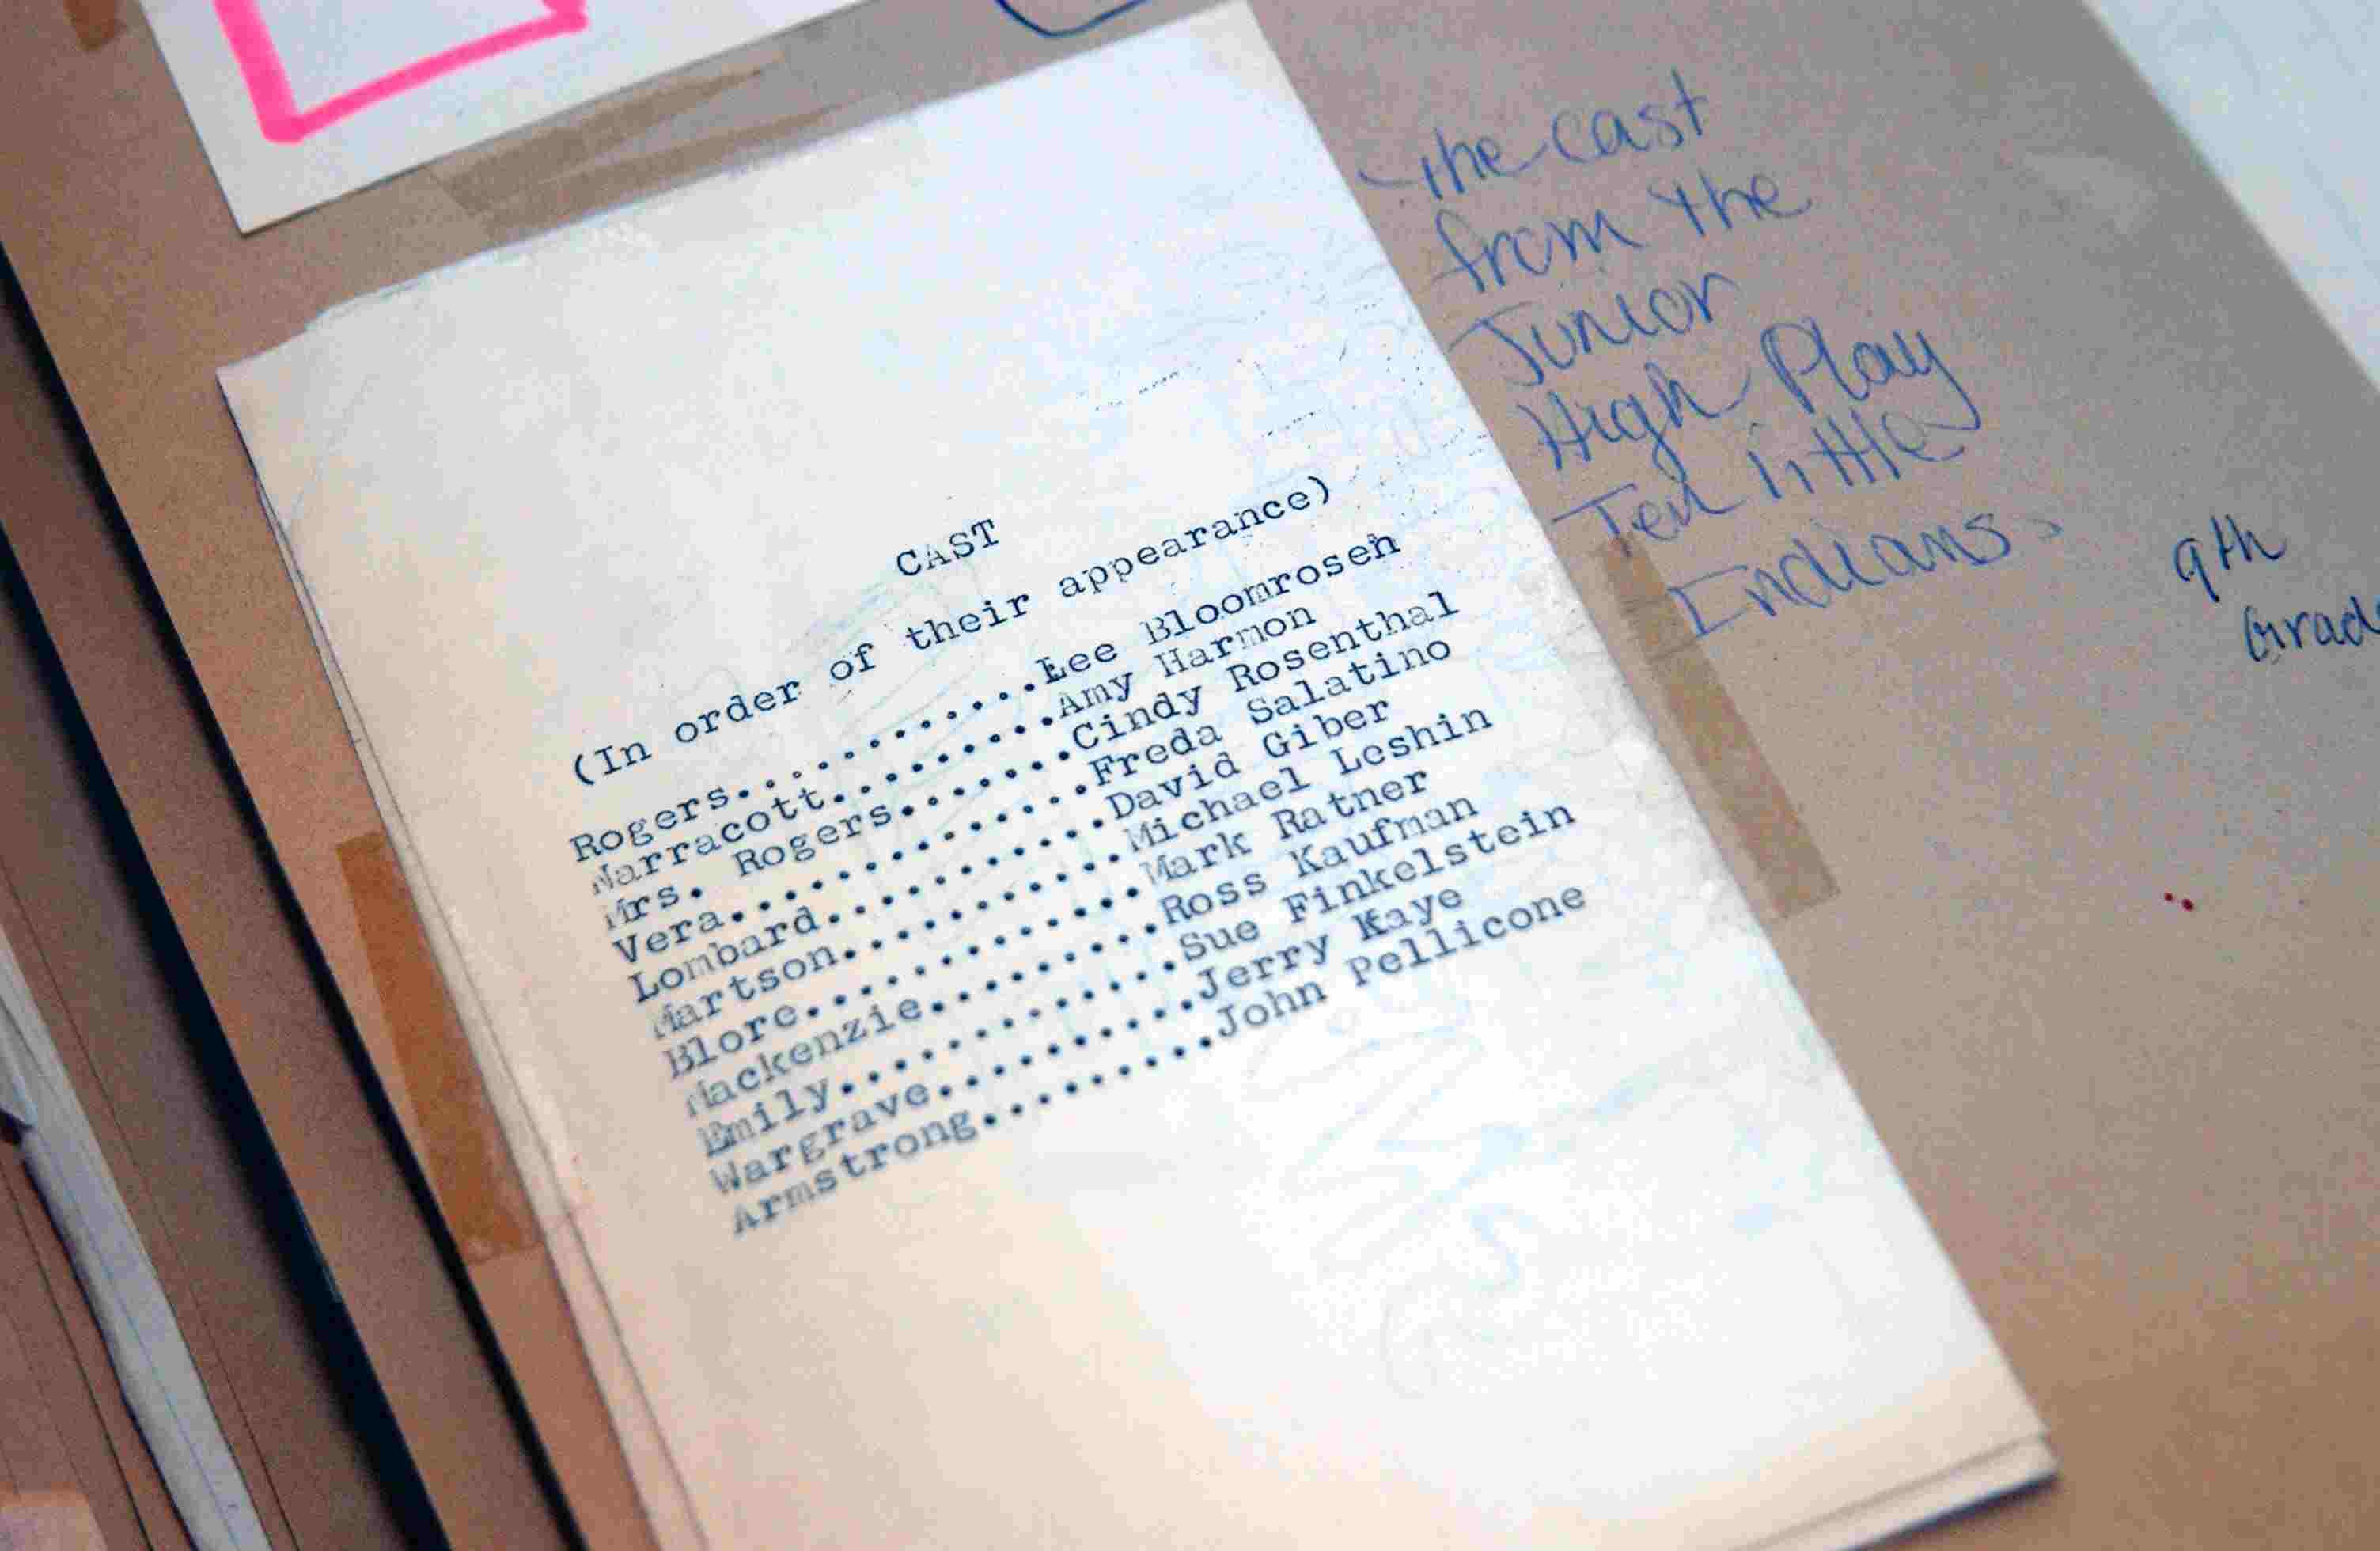 CAST
(In order of their appearance)
Rogers............Lee Bloomrosen
Narracott..........Amy Harmon
Mrs. Rogers........Cindy Rosenthal
Vera................Freda Salatino
Lombard.............David Giber
Martson.............Michael Leshin
Blore...............Mark Ratner
Mackenzie..........Ross Kaufman
Emily...............Sue Finkelstein
Wargrave............Jerry Kaye
Armstrong...........John Pellicone
The cast
from the
Junior
High Play
Ten little
Indians.
9th
Grad